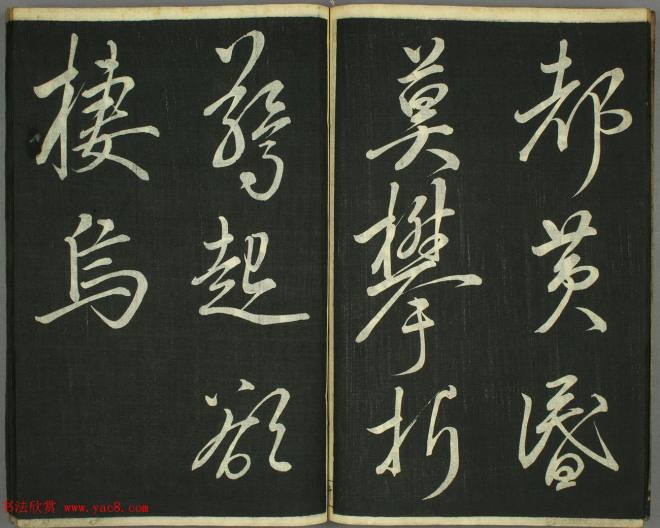 都黄昏
莫攀折
驚起欲
棲烏
书法欣赏 www.yac8.com